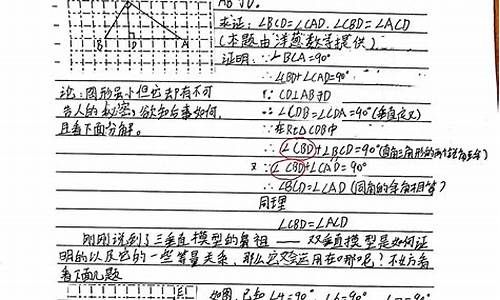 AB于D.
求证:∠BCD=∠CAD.∠CBD=∠ACD
(本题由洋葱数学提供)
证明:∵∠BCA=90°
∴∠CBD+∠CAD=90°
∵CD⊥AB于D
∴∠CDB=∠CDA=90°(垂直定义)
∴在Rt△CDB中
∴∠CBD+∠BCD=90°(直角三角形的两个锐角互余)
又∵∠CBD+∠CAD=90°
∴∠BCD=∠CAD(同角的余角相等)
同理
∠CBD=∠ACD
B D A
论:图形虽小但它却有不可
告人的秘密,欲知后事如何,
且看下面分解。
刚刚说到了三垂直模型的鼻祖——双垂直模型是如何证
明的以及它的一些等量关系,那么它又会运用在哪呢?不妨看
看下面几题
如图,已知∠A=90°